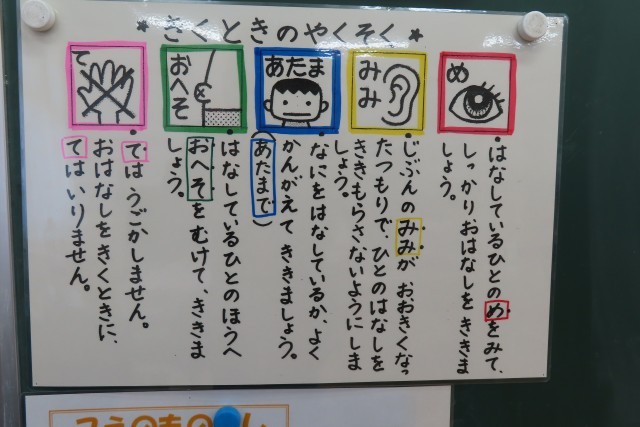 ＊きくときのやくそく＊
め
・はなしているひとのめをみて、
しっかりおはなしを ききま
しょう。
みみ
・じぶんの みみが おおきくなっ
たつもりで、ひとのはなしを
ききもらさないようにしま
しょう。
あたま
・なにをはなしているか、よく
かんがえて ききましょう。
(あたまで)
おへそ
・はなしているひとのほうへ
おへそを むけて、ききま
しょう。
て
・ては うごかしません。
おはなしをきくときに、
ては いりません。